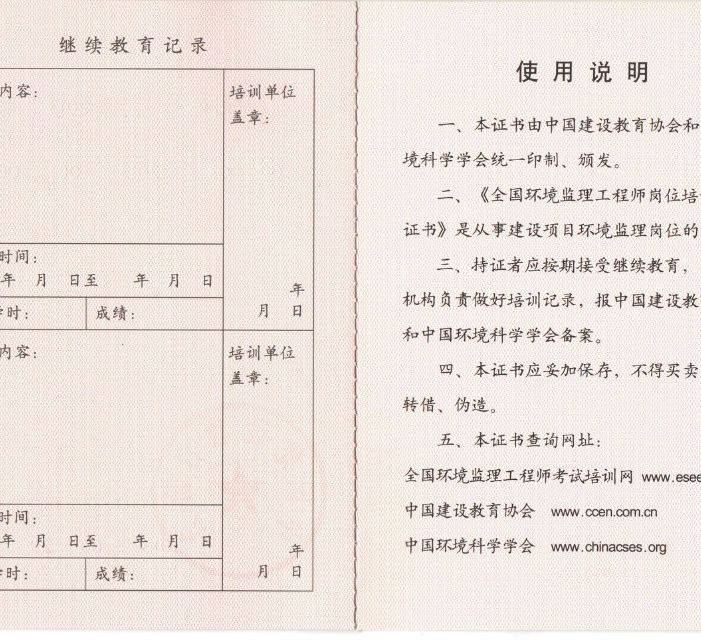 继续教育记录
内容：
培训单位
盖章：
时间：
年 月 日至 年 月 日
年
月 日
时：
成绩：
内容：
培训单位
盖章：
时间：
年 月 日至 年 月 日
年
月 日
时：
成绩：
使用说明
一、本证书由中国建设教育协会和
境科学学会统一印制、颁发。
二、《全国环境监理工程师岗位培
证书》是从事建设项目环境监理岗位的
三、持证者应按期接受继续教育，
机构负责做好培训记录，报中国建设教
和中国环境科学学会备案。
四、本证书应妥加保存，不得买卖
转借、伪造。
五、本证书查询网址：
全国环境监理工程师考试培训网 www.esee
中国建设教育协会 www.ccen.com.cn
中国环境科学学会 www.chinacses.org